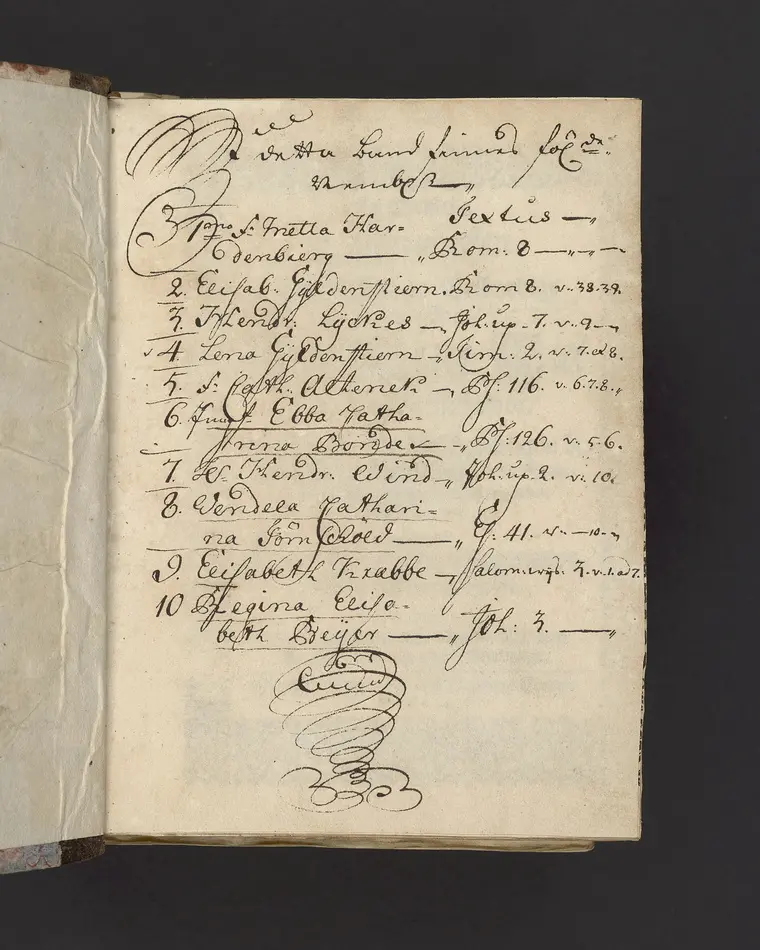 I detta band finnes föl de
Nembl.
Textus —„
1mo fr. Metta Har-
denbierg — „ Rom: 8 —„—„—
2. Elisab: Gyldenstiern. Rom 8. v. 38.39.
3. Hendr: Lyckes —„ Joh. up. 7. v. 9 —„
4. Lena Gyldenstiern —„ Tim: 2. v. 7. et 8.
5. fr. Cath. —„ Ps: 116. v. 6.7.8.„
6. Jungf. Ebba Catha-
rina Bonde —„ Ps: 126. v. 5.6.
7. Hr. Hendr: Wind —„ Joh. up. 2. v. 10.
8. Vendela Cathari-
na Törnsköld — „ Es: 41. v. —10.—„
9. Elisabeth Krabbe —„ Salom: wijs: 3. v. 1. ad 7.
10 Regina Elisa-
beth Beijer — „ Joh: 3. —„